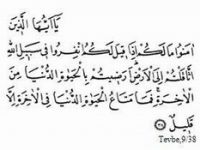 يَا أَيُّهَا الَّذِينَ
اٰمَنُوا مَا لَكُمْ اِذَا قِيلَ لَكُمُ انْفِرُوا فِي سَبِيلِ اللّٰهِ
اثَّاقَلْتُمْ اِلَى الْاَرْضِ اَرَضِيتُمْ بِالْحَيٰوةِ الدُّنْيَا مِنَ
الْاٰخِرَةِ فَمَا مَتَاعُ الْحَيٰوةِ الدُّنْيَا فِي الْاٰخِرَةِ اِلَّا
قَلِيلٌ ﴿٣٨﴾
Tevbe,9/38